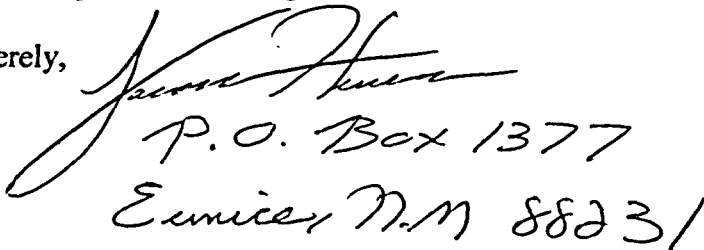 erely,
P.O. Box 1377
Eunice, N.M 88231